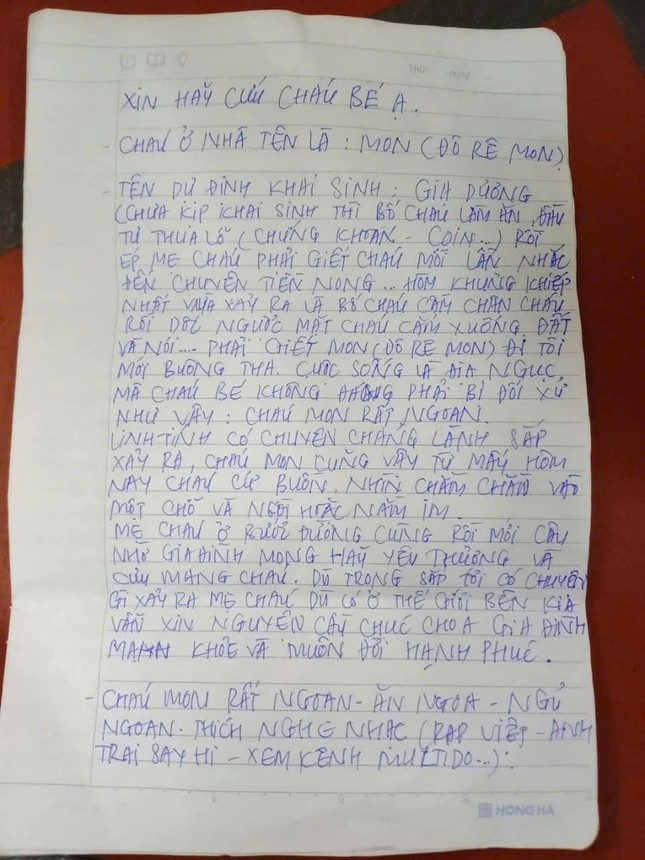 XIN HÃY CỨU CHÁU BÉ Ạ.
- CHÁU Ở NHÀ TÊN LÀ : MON (ĐÔ RÊ MON)
- TÊN DỰ ĐỊNH KHAI SINH : GIA DƯƠNG
(CHƯA KỊP KHAI SINH THÌ BỐ CHÁU LÀM ĂN, ĐẦU
TƯ THUA LỖ (CHỨNG KHOÁN - COIN...) RỒI
ÉP MẸ CHÁU PHẢI GIẾT CHÁU MỖI LẦN NHẮC
ĐẾN CHUYỆN TIỀN NONG ... HÔM KHỦNG KHIẾP
NHẤT VỪA XẢY RA LÀ BỐ CHÁU CẦM CHÂN CHÁU
RỒI DỐC NGƯỢC MẶT CHÁU CẮM XUỐNG ĐẤT
VÀ NÓI.... PHẢI GIẾT MON (ĐÔ RÊ MON) ĐI TÔI
MỚI BUÔNG THA. CUỘC SỐNG LÀ ĐỊA NGỤC,
MÀ CHÁU BÉ KHÔNG ĐÁNG PHẢI BỊ ĐỐI XỬ
NHƯ VẬY : CHÁU MON RẤT NGOAN.
LINH TÍNH CÓ CHUYỆN CHẲNG LÀNH SẮP
XẢY RA, CHÁU MON CŨNG VẬY TỪ MẤY HÔM
NAY CHÁU CỨ BUỒN, NHÌN CHẰM CHẰM VÀO
MỘT CHỖ VÀ NGỒI HOẶC NẰM IM.
MẸ CHÁU Ở BƯỚC ĐƯỜNG CÙNG RỒI MỚI CẦU
NHỜ GIA ĐÌNH MONG HÃY YÊU THƯƠNG VÀ
CƯU MANG CHÁU. DÙ TRONG SẮP TỚI CÓ CHUYỆN
GÌ XẢY RA MẸ CHÁU DÙ CÓ Ở THẾ GIỚI BÊN KIA
VẪN XIN NGUYỆN CẦU CHÚC CHO GIA ĐÌNH
MẠNH KHỎE VÀ MUÔN ĐỜI HẠNH PHÚC.
- CHÁU MON RẤT NGOAN - ĂN NGOA - NGỦ
NGOAN. THÍCH NGHE NHẠC (RAP VIỆT - ANH
TRAI SAY HI - XEM KÊNH MULTIDO...).
HONG HA